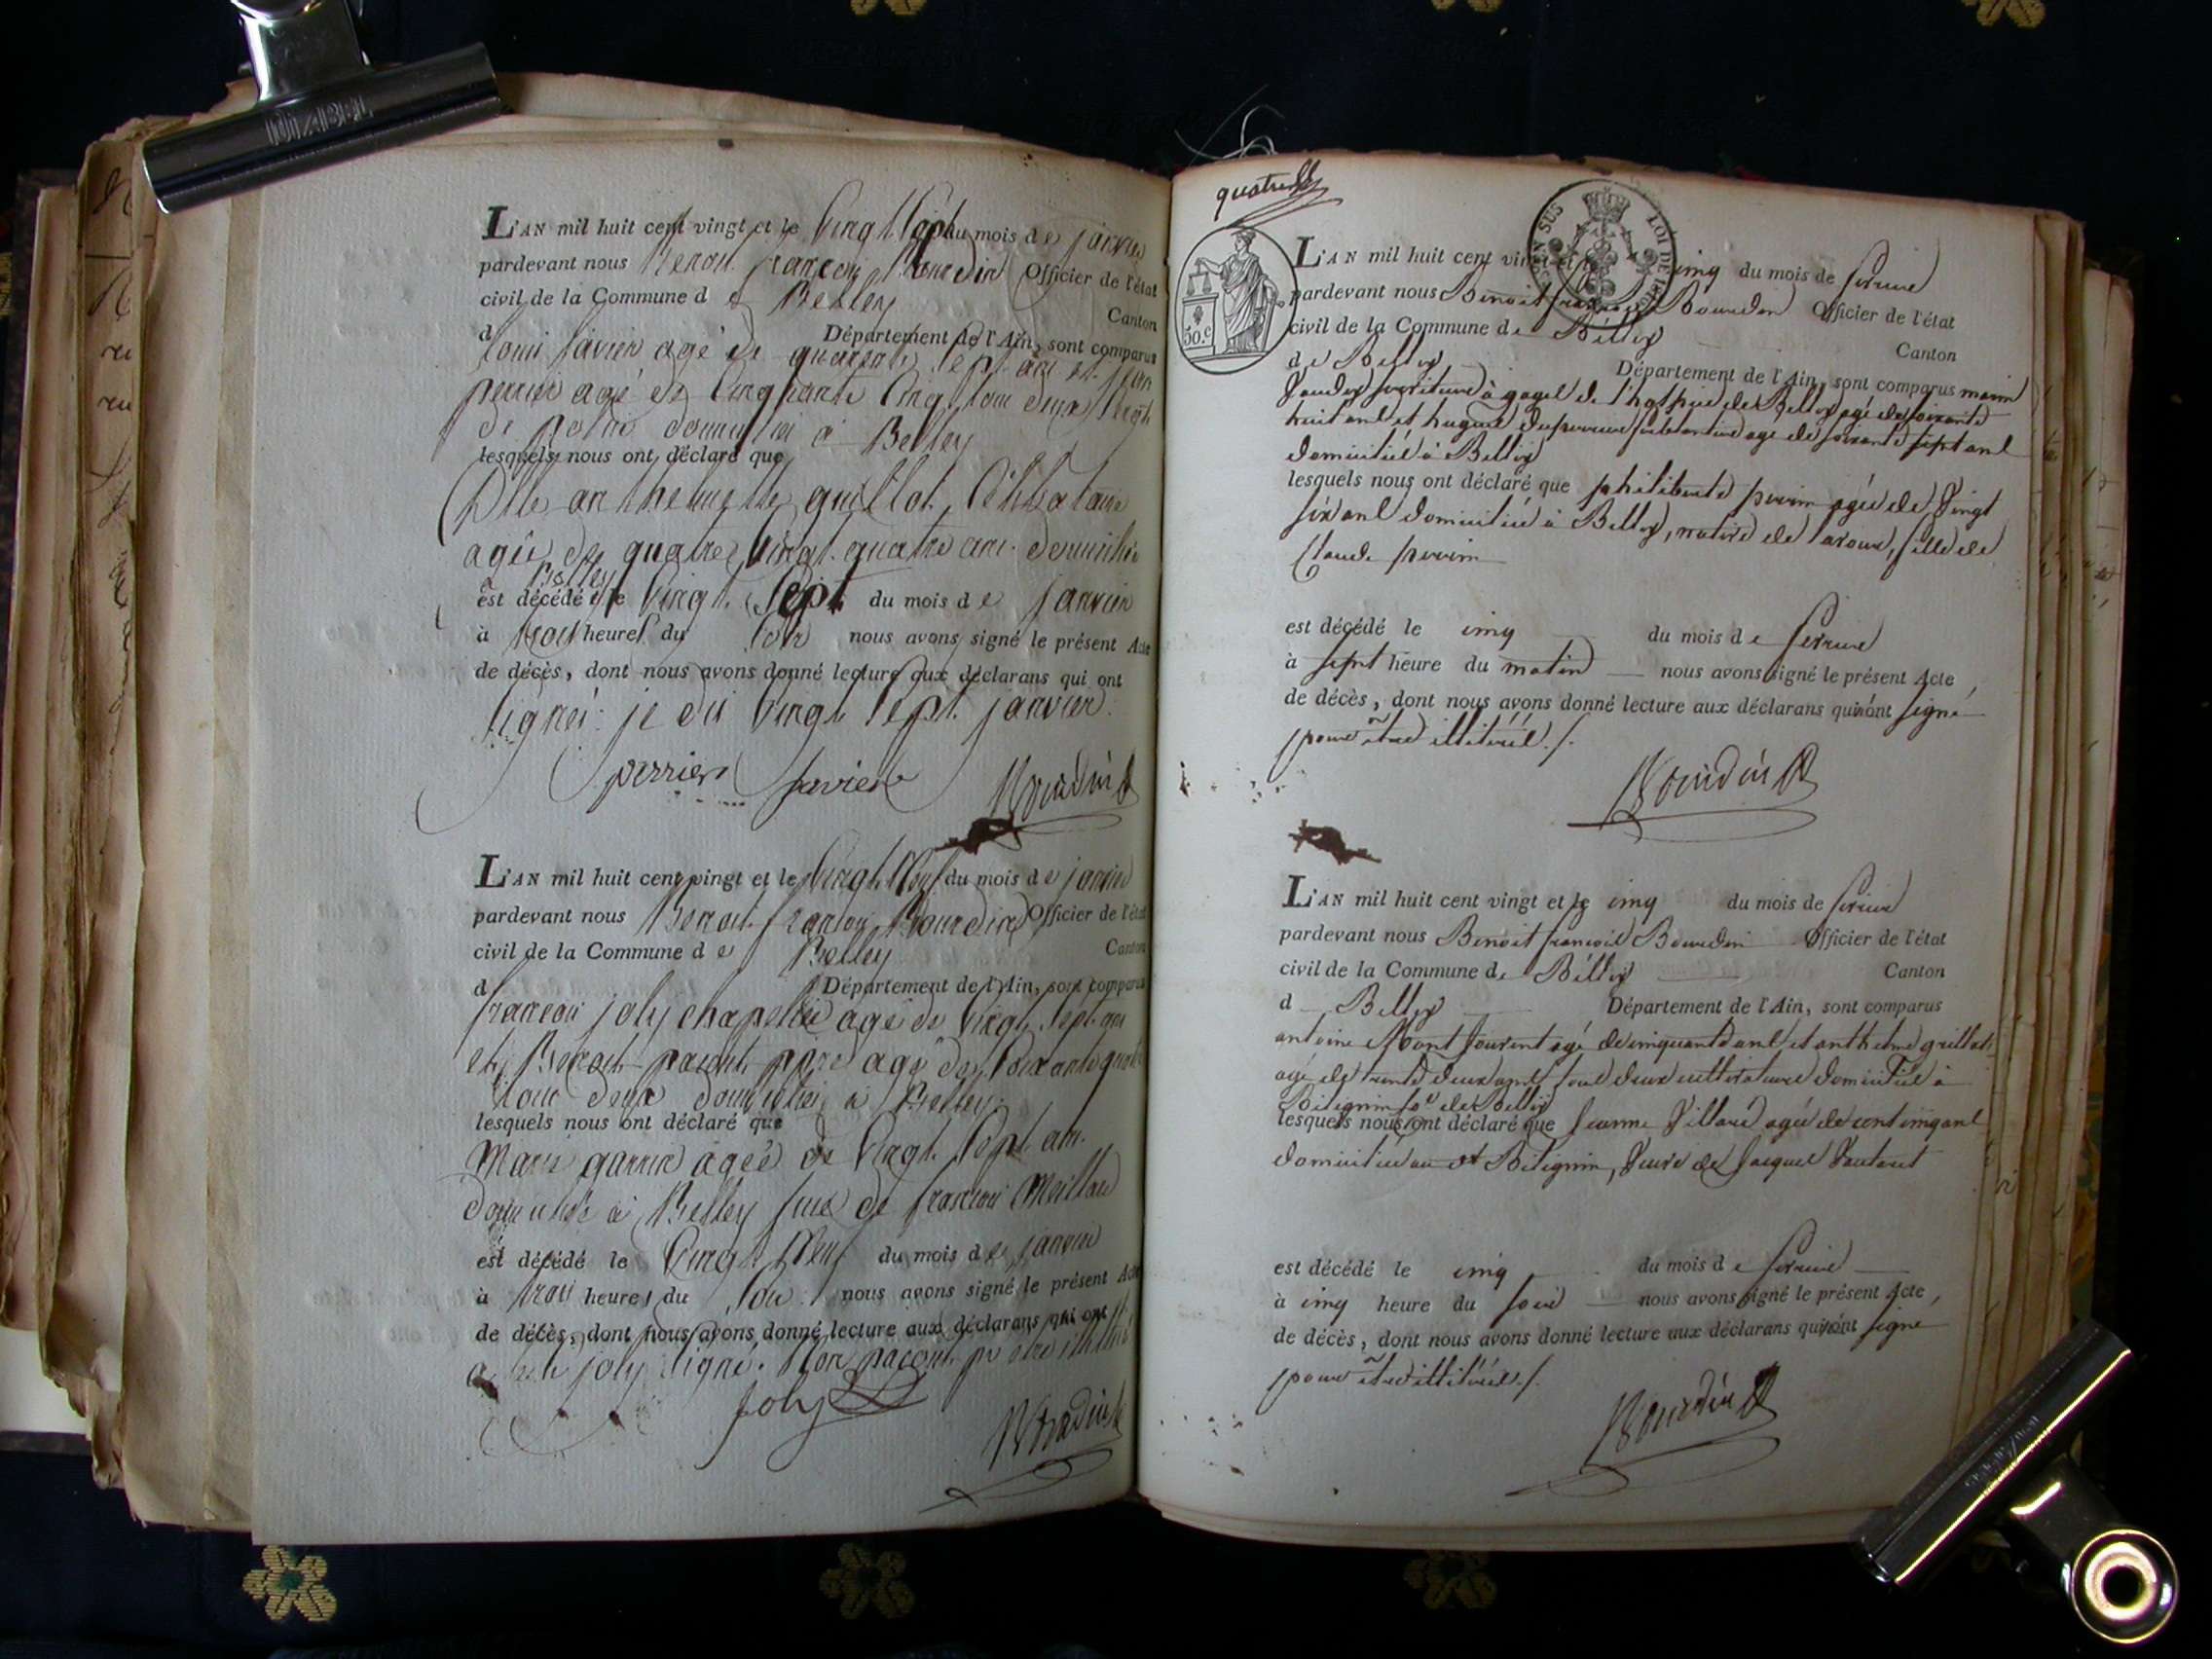 L'AN mil huit cent vingt et le vingt sept du mois de janvier
pardevant nous Benoit françois Bourdin Officier de l'état
civil de la Commune de Belley
Canton
d Département de l'Ain, sont comparus
louis savier agé de quarante sept ans et jean
perrier agé de cinquante cinq tous deux
de domicilies à Belley
lesquels nous ont déclaré que
Dlle anthelmette guillot Célibataire
agée de quatre vingt quatre ans domiciliée
à Belley
est décédé le vingt sept du mois de janvier
à trois heures du soir nous avons signé le présent Acte
de décès, dont nous avons donné lecture aux déclarans qui ont
signés je dis vingt sept janvier.
perrier savier Bourdin
L'AN mil huit cent vingt et le vingt neuf du mois de janvier
pardevant nous Benoit françois Bourdin Officier de l'état
civil de la Commune de Belley
Canton
d Département de l'Ain, sont comparus
françois joly chapelier agé de vingt sept ans
et Benoit agé de soixante quatre
tous deux domiciliés à Belley
lesquels nous ont déclaré que
Marie agée de vingt sept ans
domiciliée à Belley de françois
est décédé le vingt neuf du mois de janvier
à trois heures du soir nous avons signé le présent Acte
de décès, dont nous avons donné lecture aux déclarans qui ont
joly signé. Non pr etre illitéré
Joly Bourdin
quatre
50.c
EN SUS LOI DE
L'AN mil huit cent vingt et le cinq du mois de fevrier
pardevant nous Benoit françois Bourdin Officier de l'état
civil de la Commune de Belley
Canton
de Belley Département de l'Ain, sont comparus marin
à gages de l'hospice de Belley agé de soixante
huit ans et hugue agé de soixante sept ans
domiciliés à Belley
lesquels nous ont déclaré que philiberte perrin agée de vingt
six ans domiciliée à Belley, native de , fille de
Claude perrin
est décédé le cinq du mois de fevrier
à sept heure du matin nous avons signé le présent Acte,
de décès, dont nous avons donné lecture aux déclarans qui n'ont signé
pour être illitérés ./.
Bourdin
L'AN mil huit cent vingt et le cinq du mois de fevrier
pardevant nous Benoit françois Bourdin Officier de l'état
civil de la Commune de Belley
Canton
d Belley Département de l'Ain, sont comparus
antoine Mont Jouvent agé de cinquante ans et anthelme guillot
agé de trente deux ans tous deux cultivateurs domiciliés à
Bitignin de Belley
lesquels nous ont déclaré que Jeanne Villard agée de cent cinq ans
domiciliée au dt Bitignin, veuve de Jacques
est décédé le cinq du mois de fevrier
à cinq heure du soir nous avons signé le présent Acte,
de décès, dont nous avons donné lecture aux déclarans qui n'ont signé
pour être illitérés ./.
Bourdin